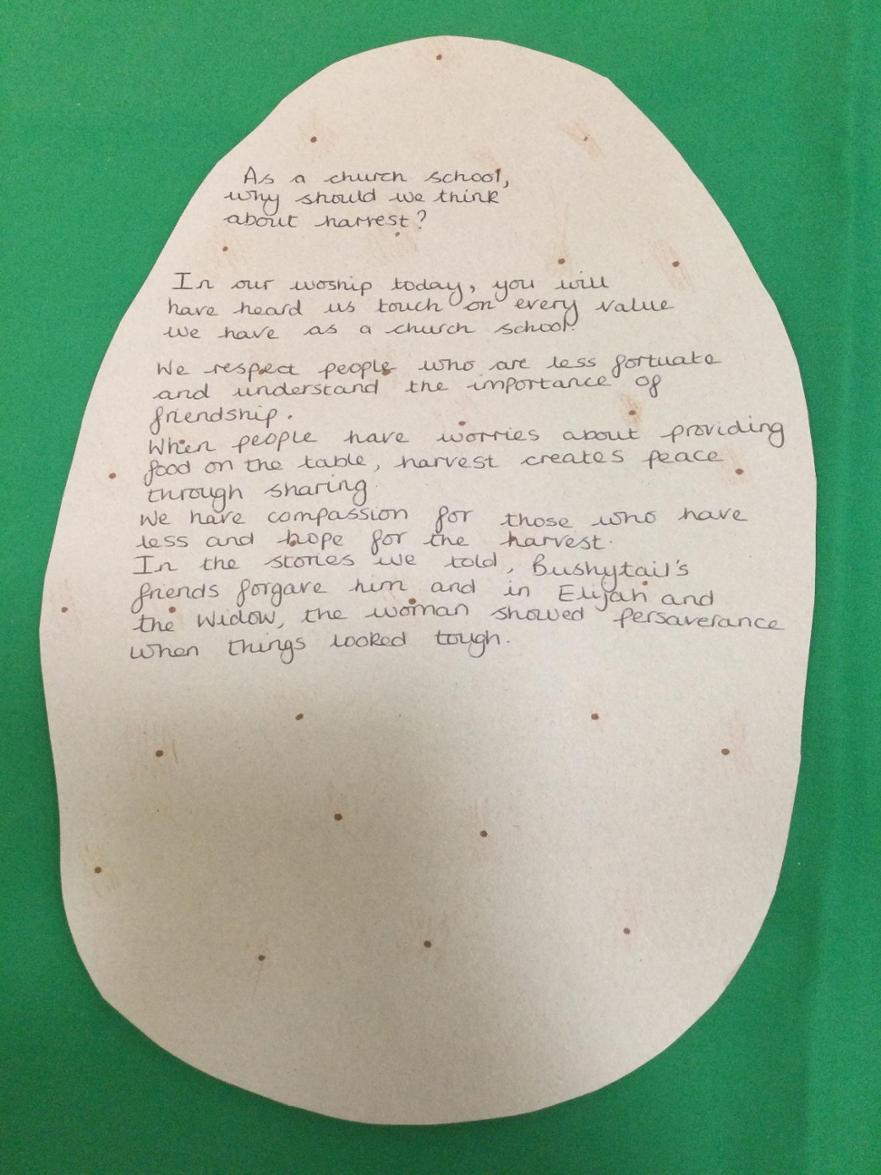 As a church school,
why should we think
about harvest?
In our woship today, you will
have heard us touch on every value
we have as a church school.
We respect people who are less fortuate
and understand the importance of
friendship.
When people have worries about providing
food on the table, harvest creates peace
through sharing.
We have compassion for those who have
less and hope for the harvest.
In the stories we told, Bushytail's
friends forgave him and in Elijah and
the Widow, the woman showed persaverance
when things looked tough.